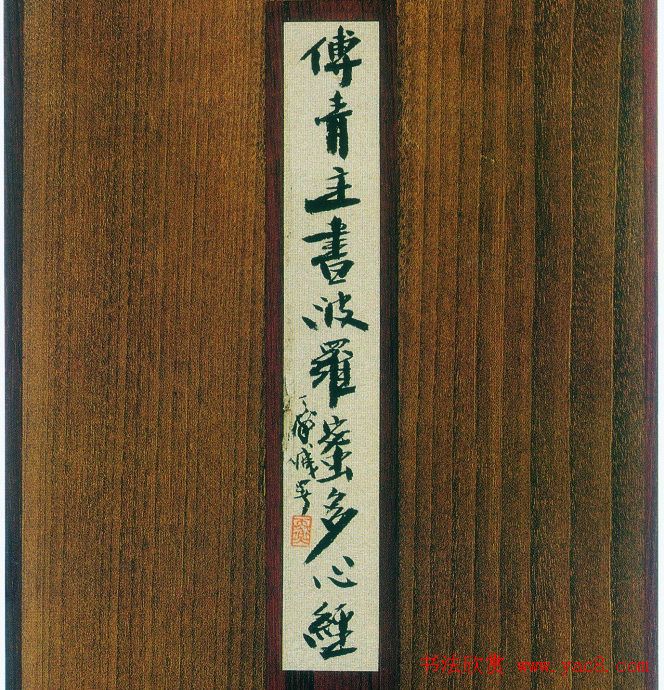 傅青主書波羅蜜多心經
书法欣赏 www.yac8.com